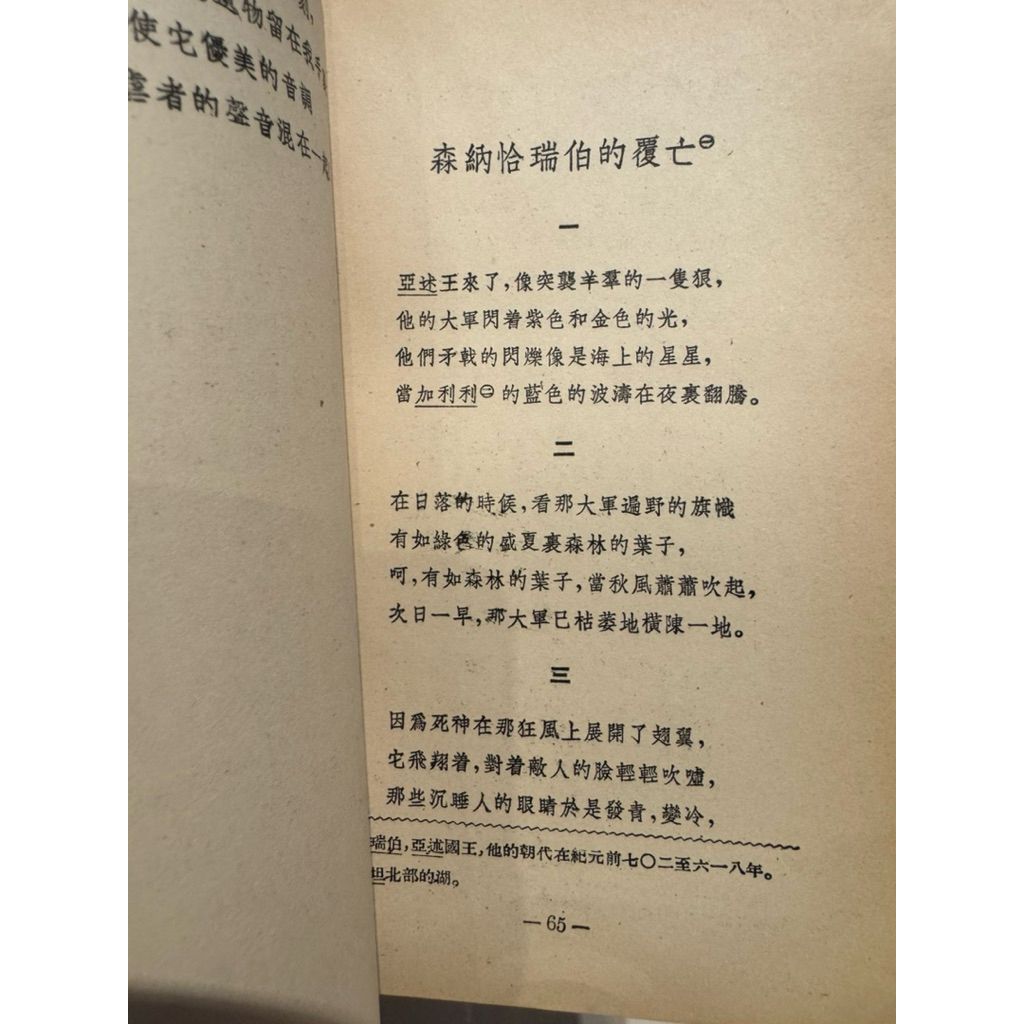 物留在我手
使它優美的音調
者的聲音混在一起
森納恰瑞伯的覆亡㊀
一
亞述王來了,像突襲羊羣的一隻狠,
他的大軍閃着紫色和金色的光,
他們矛戟的閃爍像是海上的星星,
當加利利㊁的藍色的波濤在夜裏翻騰。
二
在日落的時候,看那大軍遍野的旗幟
有如綠色的盛夏裏森林的葉子,
呵,有如森林的葉子,當秋風蕭蕭吹起,
次日一早,那大軍已枯萎地橫陳一地。
三
因爲死神在那狂風上展開了翅翼,
它飛翔着,對着敵人的臉輕輕吹噓,
那些沉睡人的眼睛於是發青,變冷,
瑞伯,亞述國王,他的朝代在紀元前七〇二至六一八年。
坦北部的湖。
—65—